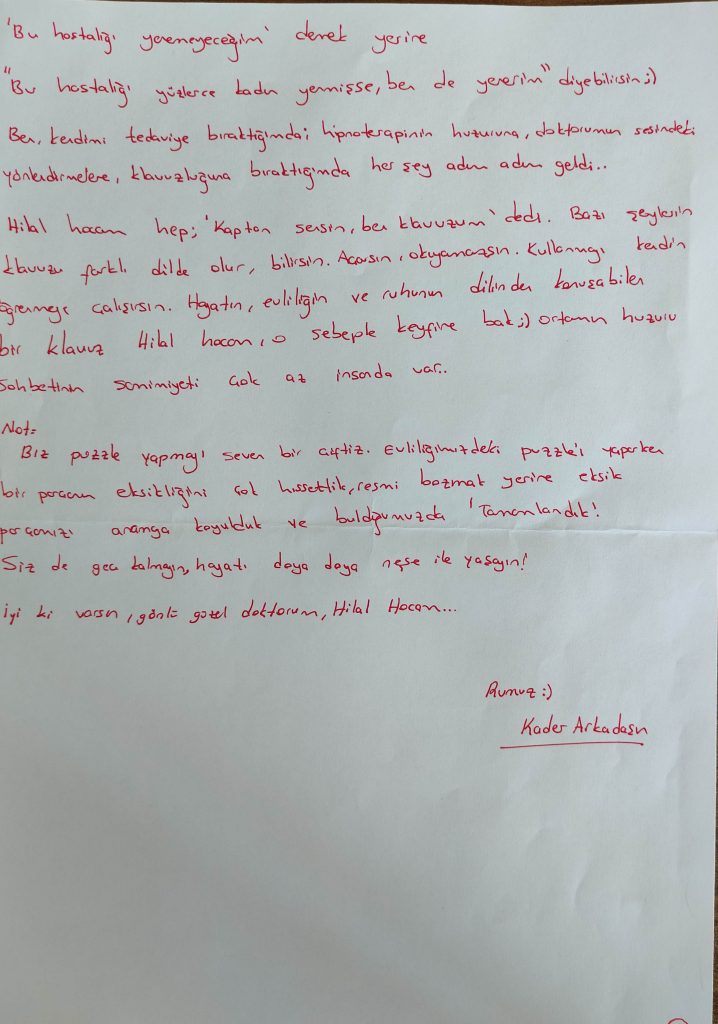 'Bu hastalığı yenemeyeceğim' demek yerine
"Bu hastalığı yüzlerce kadın yenmişse, ben de yenerim" diyebilirsin ;)
Ben, kendimi tedaviye bıraktığımda; hipnoterapinin huzuruna, doktorumun sesindeki
yönlendirmelere, klavuzluğuna bıraktığımda her şey adım adım geldi..
Hilal hocam hep; 'Kaptan sensin, ben klavuzum' dedi. Bazı şeylerin
klavuzu farklı dilde olur, bilirsin. Açarsın, okuyamazsın. Kullanmayı kendin
öğrenmeye çalışırsın. Hayatın, evliliğin ve ruhunun dilinden konuşabilen
bir klavuz Hilal hocam, o sebeple keyfine bak ;) ortamın huzuru
sohbetinin samimiyeti çok az insanda var..
Not=
Biz puzzle yapmayı seven bir çiftiz. Evliliğimizdeki puzzle'ı yaparken
bir parçanın eksikliğini çok hissettik, resmi bozmak yerine eksik
parçamızı aramaya koyulduk ve bulduğumuzda 'Tamamlandık!
Siz de geç kalmayın, hayatı doya doya neşe ile yaşayın!
İyi ki varsın, gönlü güzel doktorum, Hilal Hocam...
Rumuz :)
Kader Arkadaşın